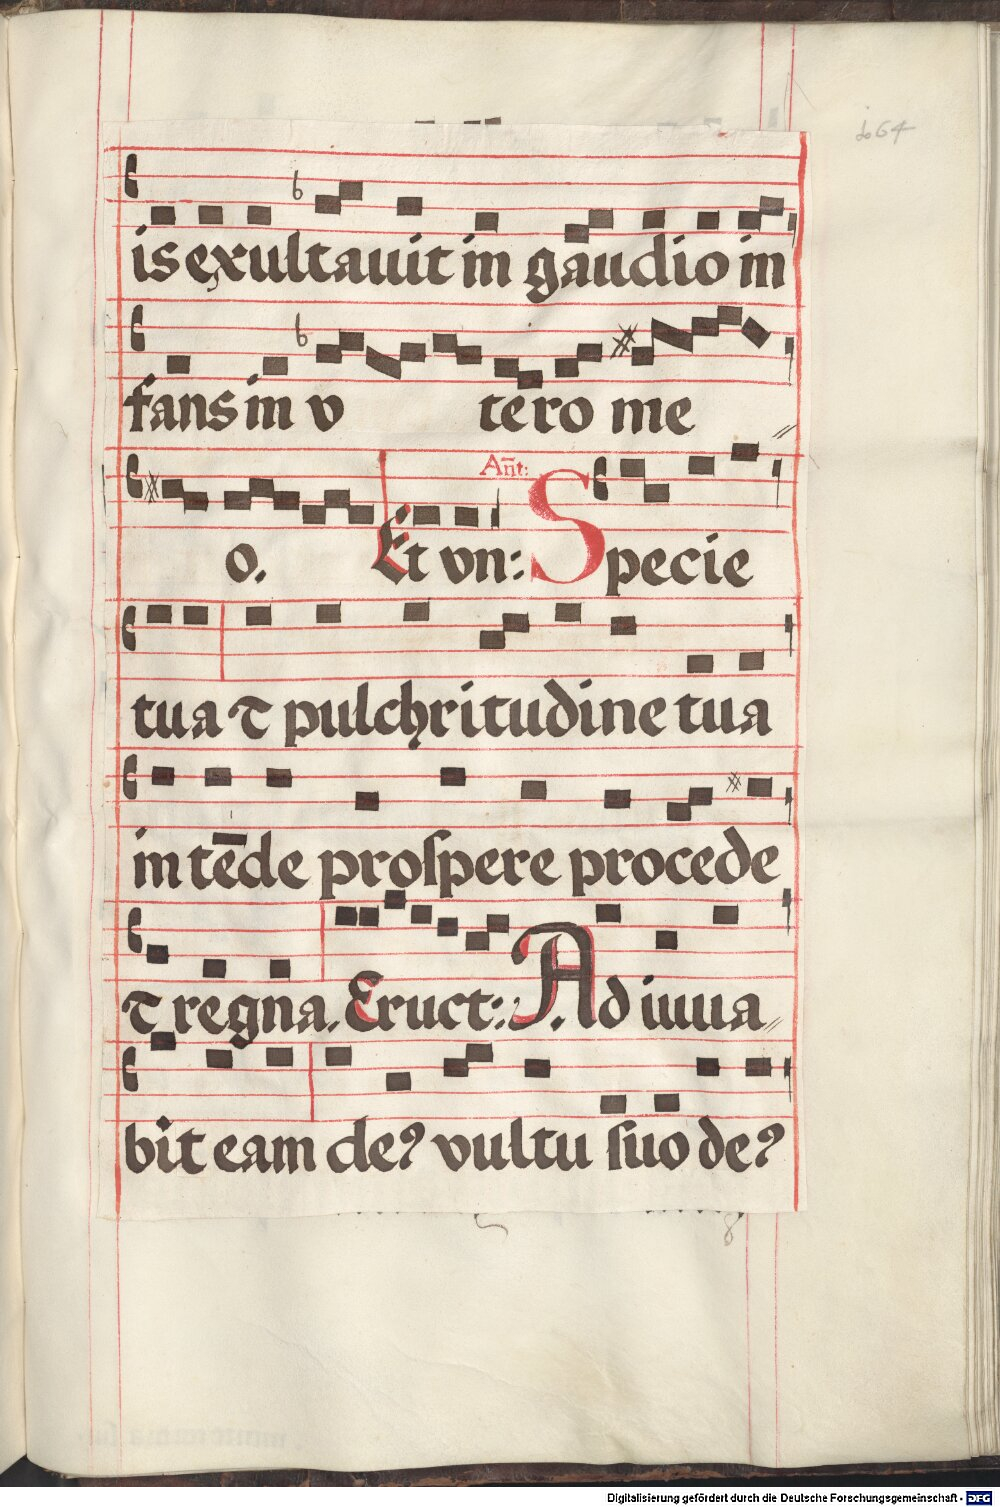 do 64
is exultauit in gaudio in
fans in v tero me
Añt:
o. Et vn: Specie
tua ⁊ pulchritudine tua
intēde prospere procede
⁊ regna. Eruct: Adiuua
bit eam deꝰ vultu suo deꝰ
Digitalisierung gefördert durch die Deutsche Forschungsgemeinschaft - DFG